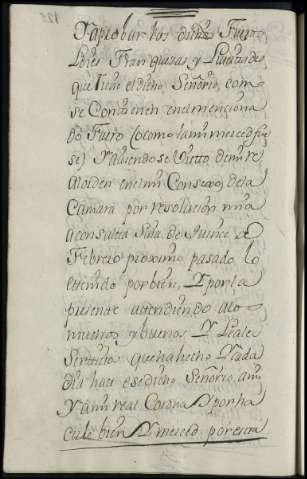 Y aprobar los dichos Fueros
Leies Franquezas y Livertades
que tiene el dicho Señorio, como
se Contienen en el menciona
do Fuero (o como la mi merced fue
se) Y aviendose Visto de mi re
al orden en el mi Consexo, de la
Camara por resolucion mia
a consulta suia, de quince de
Febrero proximo pasado lo
e tenido por bien, Y por la
presente attendiendo a lo
muchos y buenos, Y Leales
Servicios que ha hecho Y cada
dia hace ese dicho Señorio, a mi
Y a mi real Corona Y por ha
cerle bien Y merced, por esta